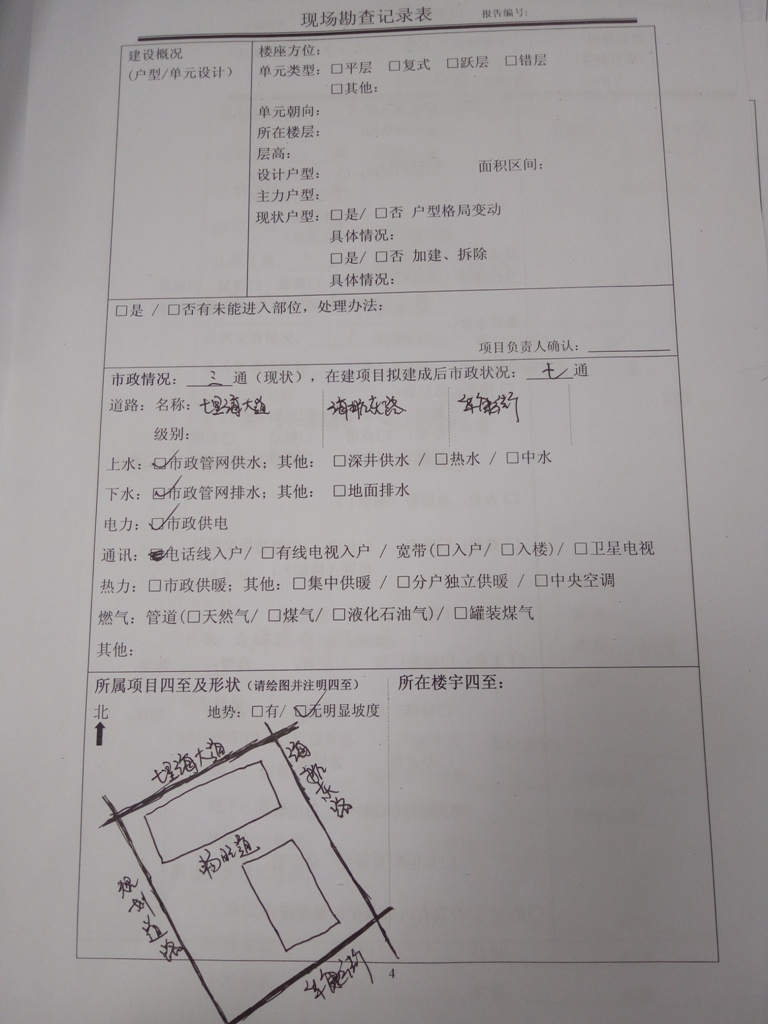 现场勘查记录表 报告编号:
建设概况
(户型/单元设计)
楼座方位:
单元类型: □平层 □复式 □跃层 □错层
□其他:
单元朝向:
所在楼层:
层高:
设计户型: 面积区间:
主力户型:
现状户型: □是/ □否 户型格局变动
具体情况:
□是/ □否 加建、拆除
具体情况:
□是 / □否有未能进入部位，处理办法:
项目负责人确认:
市政情况: 三 通（现状），在建项目拟建成后市政状况: 七 通
道路: 名称: 七里海大道
级别:
上水: ☑市政管网供水; 其他: □深井供水 / □热水 / □中水
下水: ☑市政管网排水; 其他: □地面排水
电力: ☑市政供电
通讯: ■电话线入户/ □有线电视入户 / 宽带(□入户/ □入楼)/ □卫星电视
热力: □市政供暖; 其他: □集中供暖 / □分户独立供暖 / □中央空调
燃气: 管道(□天然气/ □煤气/ □液化石油气)/ □罐装煤气
其他:
所属项目四至及形状（请绘图并注明四至）
北 地势: □有/ ☑无明显坡度
所在楼宇四至:
七里海大道
畅旺道
规划道路
4